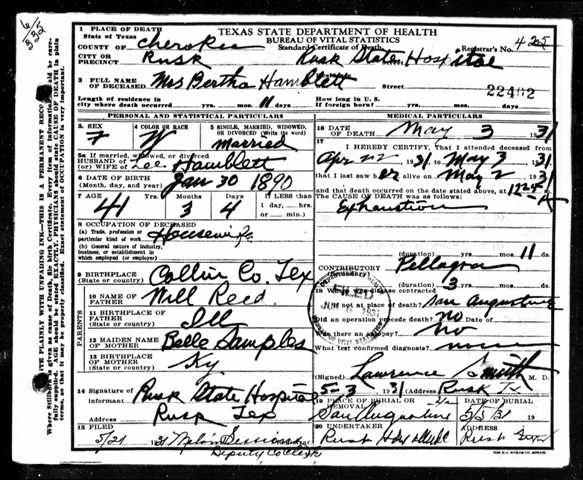 TEXAS STATE DEPARTMENT OF HEALTH
BUREAU OF VITAL STATISTICS
Standard Certificate of Death
Registrar's No. 425
1 PLACE OF DEATH
State of Texas
COUNTY OF Cherokee
CITY OR PRECINCT Rusk Rusk State Hospital
2 FULL NAME OF DECEASED Mrs Bertha Hamblett Street
22492
Length of residence in city where death occurred yrs. mos. 11 days
How long in U.S. if foreign born? yrs. mos. days
PERSONAL AND STATISTICAL PARTICULARS
3 SEX F
4 COLOR OR RACE W
5 SINGLE, MARRIED, WIDOWED, OR DIVORCED (Write the word) married
5a If married, widowed, or divorced
HUSBAND OF (or) WIFE OF Lee Hamblett
6 DATE OF BIRTH (Month, day, and year) Jan 30 1890
7 AGE 41 Months 3 Days 4 IF LESS than 1 day
hrs. min.
8 OCCUPATION OF DECEASED
(a) Trade, profession or particular kind of work Housewife
(b) General nature of industry, business, or establishment in which employed (or employer)
9 BIRTHPLACE (State or country) Collin Co. Tex
PARENTS
10 NAME OF FATHER Will Reed
11 BIRTHPLACE OF FATHER (State or country) Ill
12 MAIDEN NAME OF MOTHER Belle Samples
13 BIRTHPLACE OF MOTHER (State or country) Ky
14 Signature of Informant Rusk State Hospital
Rusk Tex
15 FILED 5/21 31
Deputy Co Clerk
MEDICAL PARTICULARS
16 DATE OF DEATH May 3 1931
17 I HEREBY CERTIFY, That I attended deceased from
Apr 22 1931 to May 3 1931
that I last saw her alive on May 2 1931
and that death occurred on the date stated above, at
The CAUSE OF DEATH was as follows:
Exhaustion
(duration) yrs. mos. 11 ds.
CONTRIBUTORY Pellagra
(duration) 3 yrs. mos. ds.
18 Where was disease contracted
if not at place of death? San Augustine
Did an operation precede death? no
Was there an autopsy? no
What test confirmed diagnosis? none
(Signed) Lawrence Smith M. D.
5-3 1931 (Address) Rusk Tex
19 PLACE OF BURIAL OR REMOVAL San Augustine
DATE OF BURIAL 5/3/31 19
20 UNDERTAKER Rusk
ADDRESS Rusk